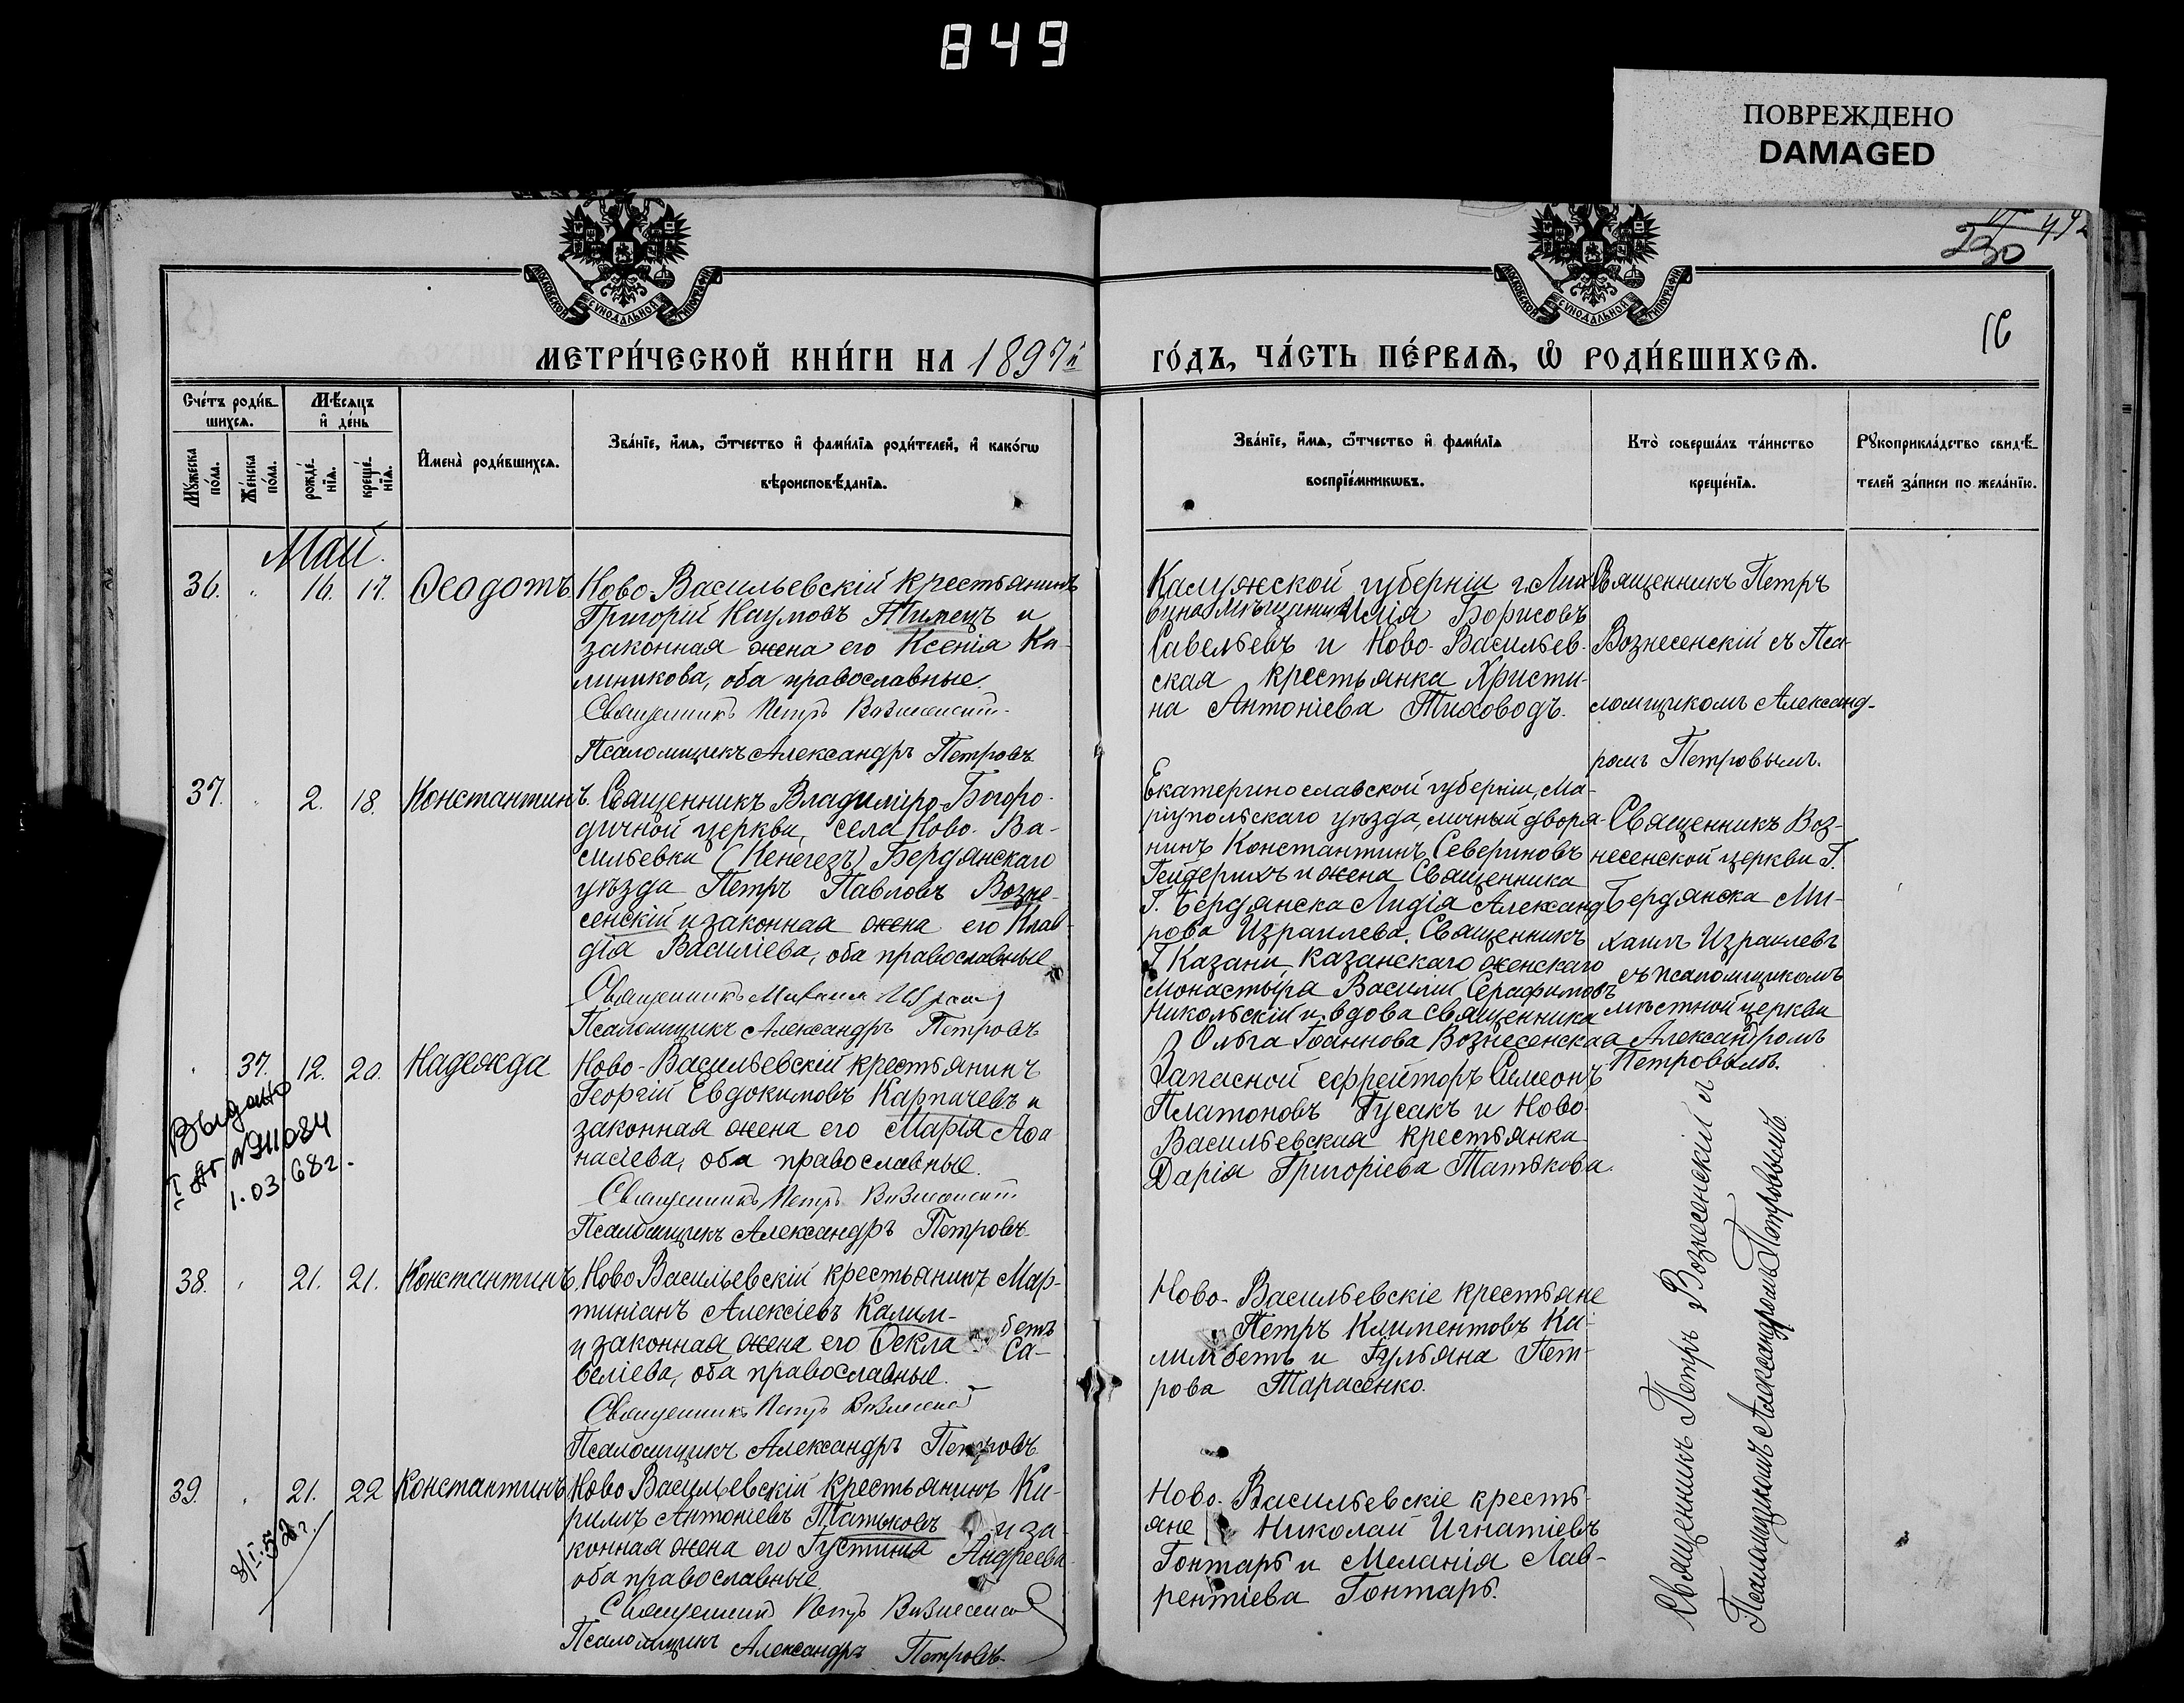 849
ПОВРЕЖДЕНО
DAMAGED
230
16
МОСКОВСКОЙ СѴНОДАЛЬНОЙ ТИПОГРАФІИ
МОСКОВСКОЙ СѴНОДАЛЬНОЙ ТИПОГРАФІИ
МЕТРИ́ЧЕСКОЙ КНИ́ГИ НА 1897й
ГО́ДЪ, ЧА́СТЬ ПЕ́РВАѦ, Ѡ҆ РОДИ́ВШИХСѦ.
Сче́тъ роди́в-
шихсѧ.
Мꙋ́жеска по́ла.
Же́нска по́ла.
Мѣ́сѧцъ
и҆ де́нь
рожде́-нїѧ.
креще́-нїѧ.
И҆мена̀ роди́вшихсѧ.
Зва́нїе, и҆́мѧ, ѻ҆́тчество и҆ фами́лїѧ роди́телей, и҆ како́гѡ
вѣроисповѣ́данїѧ.
Зва́нїе, и҆́мѧ, ѻ҆́тчество и҆ фами́лїѧ
воспрїе́мникѡвъ.
Кто̀ соверша́лъ та́инство
креще́нїѧ.
Рꙋкоприкла́дство свидѣ́-
телей за́писи по жела́нїю.
Май.
36. " 16. 17. Ѳеодотъ. Ново Васильевскій крестьянинъ
Григорій Наумовъ Тимецъ и
законная жена его Ксенія Ка-
линикова, оба православные.
Священникъ Петръ Вознесенскій
Псаломщикъ Александръ Петровъ
Калужской губерніи г. Лих-
вина мѣщанинъ Илія Борисовъ
Савельевъ и Ново-Васильев-
ская крестьянка Христи-
на Антоніева Тиховодъ.
Священникъ Петръ
Вознесенскій съ Пса-
ломщикомъ Александ-
ромъ Петровымъ.
37. " 2. 18. Константинъ. Священникъ Владиміро-Богоро-
дичной церкви, села Ново-Ва-
сильевки (Кенегезъ) Бердянскаго
уѣзда Петръ Павловъ Возне-
сенскій и законная жена его Клав-
дія Василіева, оба православные
Священникъ Михаилъ Израил
Псаломщикъ Александръ Петровъ
Екатеринославской губерніи, Ма-
ріупольскаго уѣзда, личный дворя-
нинъ Константинъ Севериновъ
Гейдерихъ и жена Священника
Г. Бердянска Лидія Александ-
рова Израилева. Священникъ
Г Казани, Казанскаго женскаго
монастыря Василій Серафимовъ
Никольскій и вдова Священника
Ольга Іоаннова Вознесенская
Священникъ Воз-
несенской церкви Г.
Бердянска Ми-
хаилъ Израилевъ
съ псаломщикомъ
мѣстной церкви
Александромъ
Петровымъ.
" 37. 12. 20. Надежда Ново-Васильевскій крестьянинъ
Георгій Евдокимовъ Карпачевъ и
законная жена его Марія Аѳа-
насіева, оба православные.
Священникъ Петръ Вознесенскій
Псаломщикъ Александръ Петровъ
Выдано
1.03.68г.
Запасной ефрейторъ Симеонъ
Платоновъ Гусакъ и Ново-
Васильевская крестьянка
Дарія Григоріева Татькова.
38. " 21. 21. Константинъ. Ново Васильевскій крестьянинъ Мар-
тиніанъ Алексіевъ Калим-
бетъ
и законная жена его Ѳекла Са-
веліева, оба православные.
Священникъ Петръ Вознесенскій
Псаломщикъ Александръ Петровъ
Ново-Васильевскіе крестьяне
Петръ Климентовъ Ка-
лимбетъ и Іульяна Пет-
рова Тарасенко.
39. " 21. 22 Константинъ Ново Васильевскій крестьянинъ Ки-
риллъ Антоніевъ Татьковъ и за-
конная жена его Густинія Андреева
оба православные.
Священникъ Петръ Вознесенскій
Псаломщикъ Александръ Петровъ
Ново-Васильевскіе кресть-
яне Николай Игнатіевъ
Гонтарь и Меланія Лав-
рентіева Гонтарь.
Священникъ Петръ Вознесенскій съ
Псаломщикомъ Александромъ Петровымъ